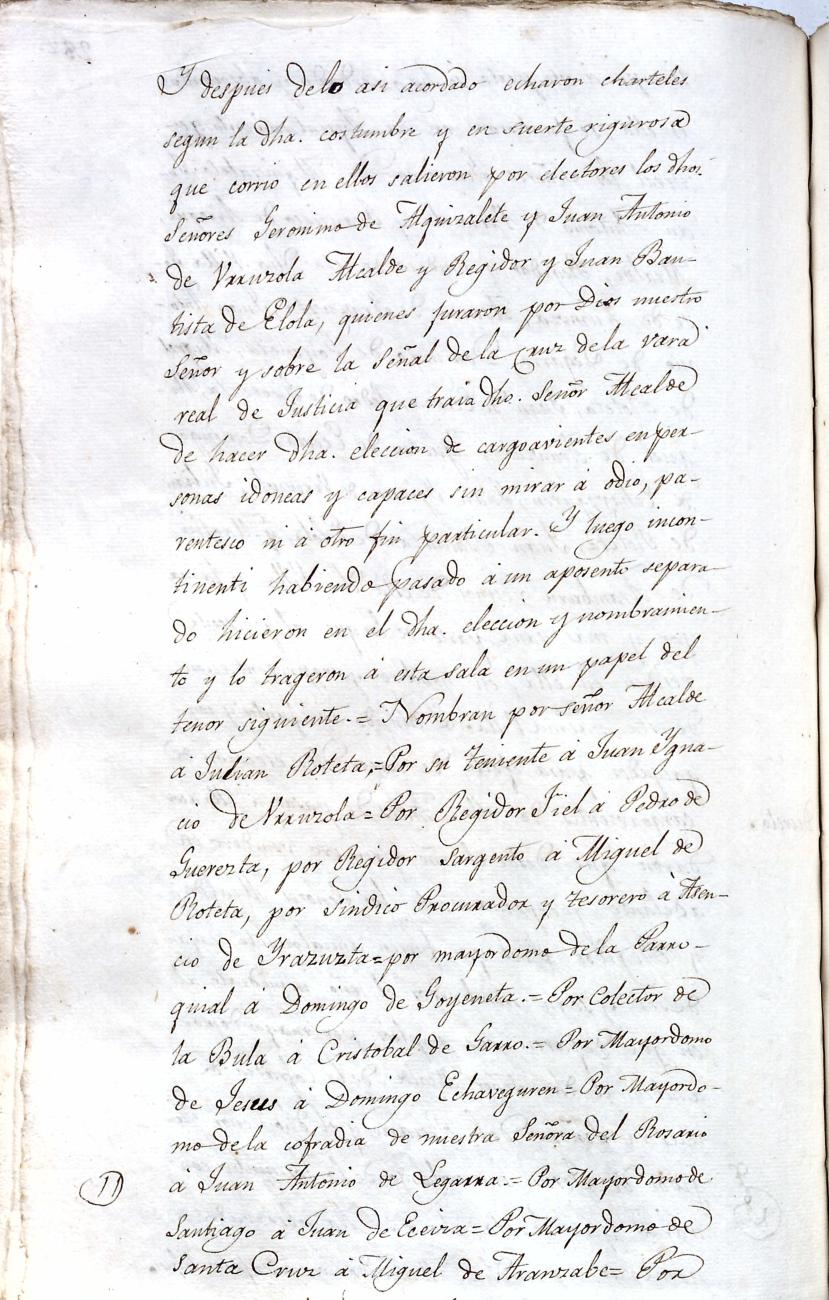 Y despues delo asi acordado echaron charteles
segun la dha. costumbre y en suerte rigurosa
que corrio en ellos salieron por electores los dhos.
Señores Geronimo de Alquizalete y Juan Antonio
de Urruzola Alcalde y Regidor y Juan Bau-
tista de Elola, quienes juraron por Dios nuestro
Señor y sobre la señal de la Cruz de la vara
real de Justicia que traia dho. Señor Alcalde
de hacer dha. eleccion de cargoavientes en per-
sonas idoneas y capaces sin mirar à odio, pa-
rentesco ni à otro fin particular. Y luego incon-
tinenti habiendo pasado à un aposento separa-
do hicieron en el dha. eleccion y nombramien-
to y lo trageron à esta sala en un papel del
tenor siguiente.= Nombran por señor Alcalde
à Julian Roteta,=Por su Teniente à Juan Ygna-
cio de Urruzola=Por Regidor Fiel à Pedro de
Guerezta, por Regidor Sargento à Miguel de
Roteta, por sindico Procurador y tesorero à Asen-
cio de Yrazuzta=por mayordomo de la Parro-
quial à Domingo de Goyeneta.=Por Colector de
la Bula à Cristobal de Garro.= Por Mayordomo
de Jesus à Domingo Echaveguren=Por Mayordo-
mo de la cofradia de nuestra Señora del Rosario
à Juan Antonio de Legarra.= Por Mayordomo de
11
Santiago à Juan de Eceiza=Por Mayordomo de
Santa Cruz à Miguel de Aranzabe= Por